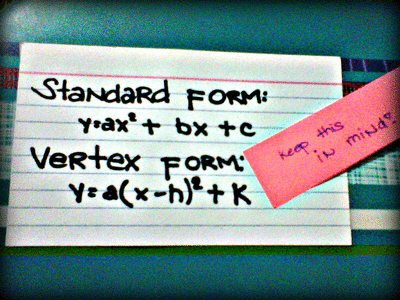 Standard FORM:
y=ax² + bx + c
Vertex FORM:
y=a(x-h)² + K
Keep this
IN MIND!